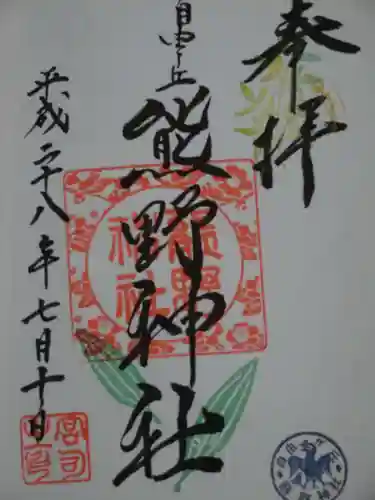 奉拝
自由ヶ丘
熊野神社
平成二十八年七月十日
熊野神社
宮司之印